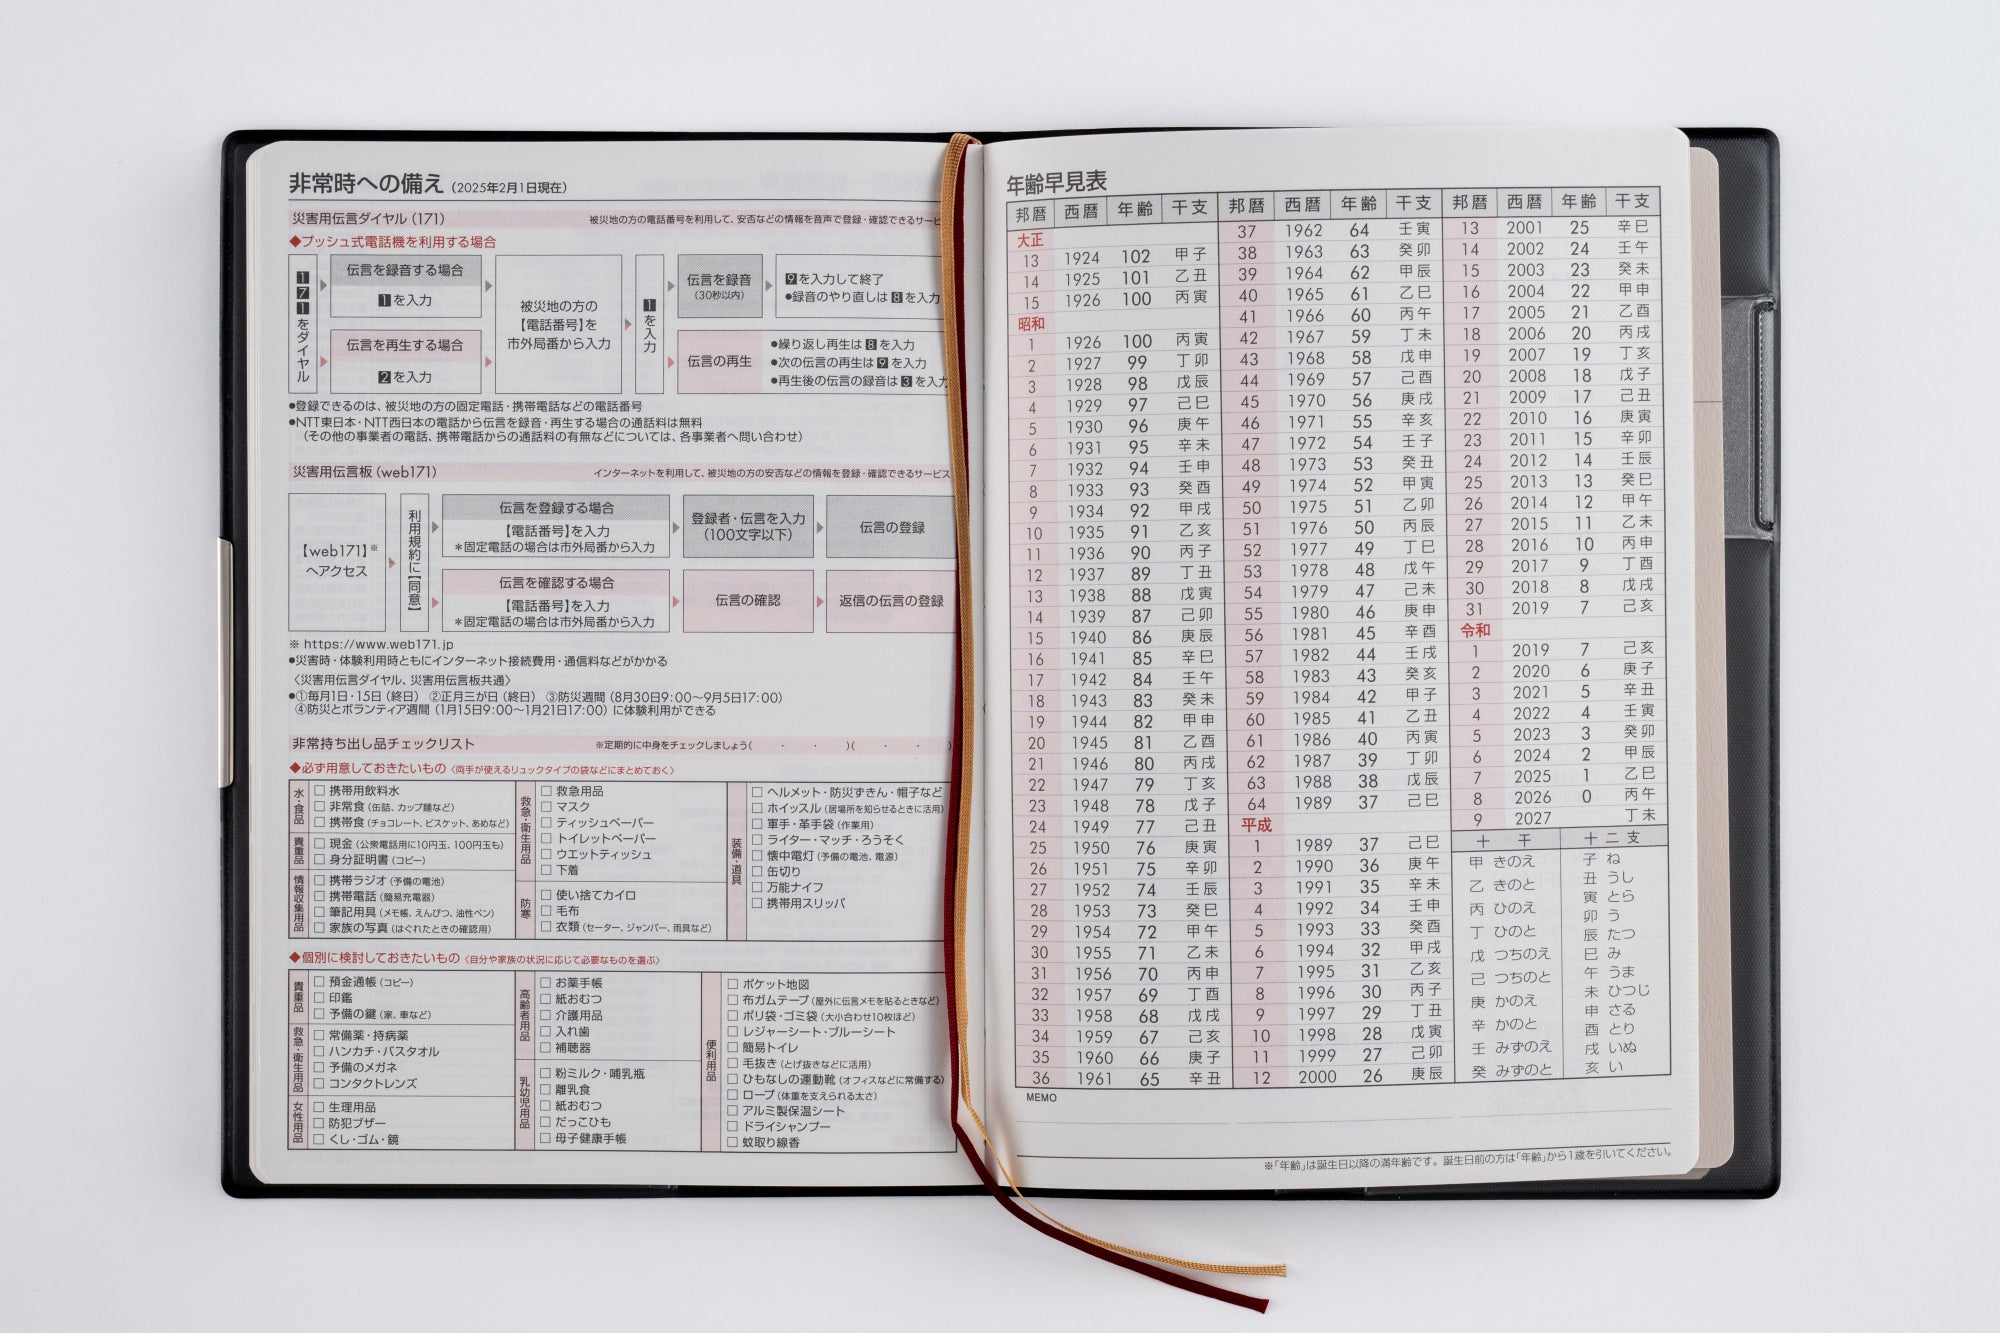 非常時への備え（2025年2月1日現在）
災害用伝言ダイヤル（171）
被災地の方の電話番号を利用して、安否などの情報を音声で登録・確認できるサービ
◆プッシュ式電話機を利用する場合
171をダイヤル
伝言を録音する場合
1を入力
伝言を再生する場合
2を入力
被災地の方の
【電話番号】を
市外局番から入力
1を入力
伝言を録音
（30秒以内）
9を入力して終了
●録音のやり直しは8を入力
伝言の再生
●繰り返し再生は8を入力
●次の伝言の再生は9を入力
●再生後の伝言の録音は3を入力
●登録できるのは、被災地の方の固定電話・携帯電話などの電話番号
●NTT東日本・NTT西日本の電話から伝言を録音・再生する場合の通話料は無料
（その他の事業者の電話、携帯電話からの通話料の有無などについては、各事業者へ問い合わせ）
災害用伝言板（web171）
インターネットを利用して、被災地の方の安否などの情報を登録・確認できるサービス
【web171】※
へアクセス
利用規約に【同意】
伝言を登録する場合
【電話番号】を入力
＊固定電話の場合は市外局番から入力
登録者・伝言を入力
（100文字以下）
伝言の登録
伝言を確認する場合
【電話番号】を入力
＊固定電話の場合は市外局番から入力
伝言の確認
返信の伝言の登録
※ https://www.web171.jp
●災害時・体験利用時ともにインターネット接続費用・通信料などがかかる
〈災害用伝言ダイヤル、災害用伝言板共通〉
●①毎月1日・15日（終日） ②正月三が日（終日） ③防災週間（8月30日9:00～9月5日17:00）
④防災とボランティア週間（1月15日9:00～1月21日17:00）に体験利用ができる
非常持ち出し品チェックリスト
※定期的に中身をチェックしましょう（ ・ ・ ）（ ・ ・ ）
◆必ず用意しておきたいもの〈両手が使えるリュックタイプの袋などにまとめておく〉
水・食品
□ 携帯用飲料水
□ 非常食（缶詰、カップ麺など）
□ 携帯食（チョコレート、ビスケット、あめなど）
貴重品
□ 現金（公衆電話用に10円玉、100円玉も）
□ 身分証明書（コピー）
情報収集用品
□ 携帯ラジオ（予備の電池）
□ 携帯電話（簡易充電器）
□ 筆記用具（メモ帳、えんぴつ、油性ペン）
□ 家族の写真（はぐれたときの確認用）
救急・衛生用品
□ 救急用品
□ マスク
□ ティッシュペーパー
□ トイレットペーパー
□ ウエットティッシュ
□ 下着
防寒
□ 使い捨てカイロ
□ 毛布
□ 衣類（セーター、ジャンパー、雨具など）
装備・道具
□ ヘルメット・防災ずきん・帽子など
□ ホイッスル（居場所を知らせるときに活用）
□ 軍手・革手袋（作業用）
□ ライター・マッチ・ろうそく
□ 懐中電灯（予備の電池、電源）
□ 缶切り
□ 万能ナイフ
□ 携帯用スリッパ
◆個別に検討しておきたいもの〈自分や家族の状況に応じて必要なものを選ぶ〉
貴重品
□ 預金通帳（コピー）
□ 印鑑
□ 予備の鍵（家、車など）
救急・衛生用品
□ 常備薬・持病薬
□ ハンカチ・バスタオル
□ 予備のメガネ
□ コンタクトレンズ
女性用品
□ 生理用品
□ 防犯ブザー
□ くし・ゴム・鏡
高齢者用品
□ お薬手帳
□ 紙おむつ
□ 介護用品
□ 入れ歯
□ 補聴器
乳幼児用品
□ 粉ミルク・哺乳瓶
□ 離乳食
□ 紙おむつ
□ だっこひも
□ 母子健康手帳
便利用品
□ ポケット地図
□ 布ガムテープ（屋外に伝言メモを貼るときなど）
□ ポリ袋・ゴミ袋（大小合わせ10枚ほど）
□ レジャーシート・ブルーシート
□ 簡易トイレ
□ 毛抜き（とげ抜きなどに活用）
□ ひもなしの運動靴（オフィスなどに常備する）
□ ロープ（体重を支えられる太さ）
□ アルミ製保温シート
□ ドライシャンプー
□ 蚊取り線香
年齢早見表
邦暦 西暦 年齢 干支
大正
13 1924 102 甲子
14 1925 101 乙丑
15 1926 100 丙寅
昭和
1 1926 100 丙寅
2 1927 99 丁卯
3 1928 98 戊辰
4 1929 97 己巳
5 1930 96 庚午
6 1931 95 辛未
7 1932 94 壬申
8 1933 93 癸酉
9 1934 92 甲戌
10 1935 91 乙亥
11 1936 90 丙子
12 1937 89 丁丑
13 1938 88 戊寅
14 1939 87 己卯
15 1940 86 庚辰
16 1941 85 辛巳
17 1942 84 壬午
18 1943 83 癸未
19 1944 82 甲申
20 1945 81 乙酉
21 1946 80 丙戌
22 1947 79 丁亥
23 1948 78 戊子
24 1949 77 己丑
25 1950 76 庚寅
26 1951 75 辛卯
27 1952 74 壬辰
28 1953 73 癸巳
29 1954 72 甲午
30 1955 71 乙未
31 1956 70 丙申
32 1957 69 丁酉
33 1958 68 戊戌
34 1959 67 己亥
35 1960 66 庚子
36 1961 65 辛丑
邦暦 西暦 年齢 干支
37 1962 64 壬寅
38 1963 63 癸卯
39 1964 62 甲辰
40 1965 61 乙巳
41 1966 60 丙午
42 1967 59 丁未
43 1968 58 戊申
44 1969 57 己酉
45 1970 56 庚戌
46 1971 55 辛亥
47 1972 54 壬子
48 1973 53 癸丑
49 1974 52 甲寅
50 1975 51 乙卯
51 1976 50 丙辰
52 1977 49 丁巳
53 1978 48 戊午
54 1979 47 己未
55 1980 46 庚申
56 1981 45 辛酉
57 1982 44 壬戌
58 1983 43 癸亥
59 1984 42 甲子
60 1985 41 乙丑
61 1986 40 丙寅
62 1987 39 丁卯
63 1988 38 戊辰
64 1989 37 己巳
平成
1 1989 37 己巳
2 1990 36 庚午
3 1991 35 辛未
4 1992 34 壬申
5 1993 33 癸酉
6 1994 32 甲戌
7 1995 31 乙亥
8 1996 30 丙子
9 1997 29 丁丑
10 1998 28 戊寅
11 1999 27 己卯
12 2000 26 庚辰
邦暦 西暦 年齢 干支
13 2001 25 辛巳
14 2002 24 壬午
15 2003 23 癸未
16 2004 22 甲申
17 2005 21 乙酉
18 2006 20 丙戌
19 2007 19 丁亥
20 2008 18 戊子
21 2009 17 己丑
22 2010 16 庚寅
23 2011 15 辛卯
24 2012 14 壬辰
25 2013 13 癸巳
26 2014 12 甲午
27 2015 11 乙未
28 2016 10 丙申
29 2017 9 丁酉
30 2018 8 戊戌
31 2019 7 己亥
令和
1 2019 7 己亥
2 2020 6 庚子
3 2021 5 辛丑
4 2022 4 壬寅
5 2023 3 癸卯
6 2024 2 甲辰
7 2025 1 乙巳
8 2026 0 丙午
9 2027 丁未
十干
甲 きのえ
乙 きのと
丙 ひのえ
丁 ひのと
戊 つちのえ
己 つちのと
庚 かのえ
辛 かのと
壬 みずのえ
癸 みずのと
十二支
子 ね
丑 うし
寅 とら
卯 う
辰 たつ
巳 み
午 うま
未 ひつじ
申 さる
酉 とり
戌 いぬ
亥 い
MEMO
※「年齢」は誕生日以降の満年齢です。誕生日前の方は「年齢」から1歳を引いてください。